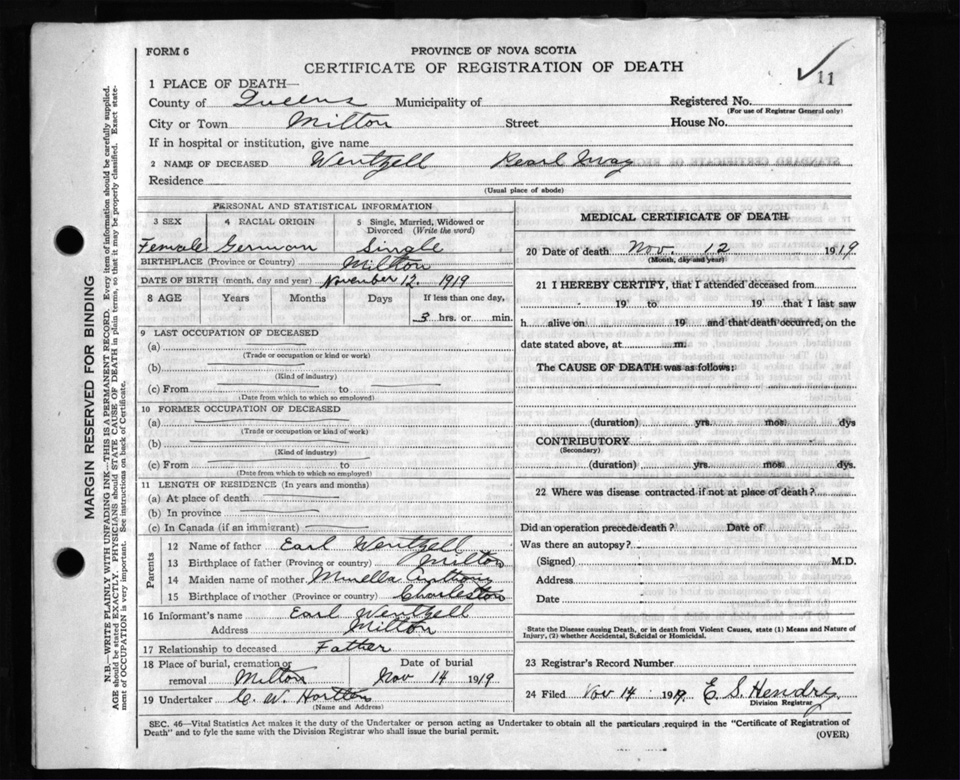 FORM 6
PROVINCE OF NOVA SCOTIA
CERTIFICATE OF REGISTRATION OF DEATH
11
1 PLACE OF DEATH—
County of Queens Municipality of Registered No.
(For use of Registrar General only)
City or Town Milton Street House No.
If in hospital or institution, give name
2 NAME OF DECEASED Wentzell Pearl May
Residence
(Usual place of abode)
PERSONAL AND STATISTICAL INFORMATION
3 SEX 4 RACIAL ORIGIN 5 Single, Married, Widowed or Divorced (Write the word)
Female German Single
BIRTHPLACE (Province or Country) Milton
DATE OF BIRTH (month, day and year) November 12. 1919
8 AGE Years Months Days If less than one day,
3 hrs. or min.
9 LAST OCCUPATION OF DECEASED
(a)
(Trade or occupation or kind or work)
(b)
(Kind of industry)
(c) From to
(Date from which to which so employed)
10 FORMER OCCUPATION OF DECEASED
(a)
(Trade or occupation or kind of work)
(b)
(Kind of industry)
(c) From to
(Date from which to which so employed)
11 LENGTH OF RESIDENCE (In years and months)
(a) At place of death
(b) In province
(c) In Canada (if an immigrant)
Parents
12 Name of father Earl Wentzell
13 Birthplace of father (Province or country) Milton
14 Maiden name of mother Anthony
15 Birthplace of mother (Province or country) Charleston
16 Informant's name Earl Wentzell
Address Milton
17 Relationship to deceased Father
18 Place of burial, cremation or removal Milton Date of burial Nov 14 1919
19 Undertaker C. W. Hortton
(Name and Address)
MEDICAL CERTIFICATE OF DEATH
20 Date of death Nov. 12 1919
(Month, day and year)
21 I HEREBY CERTIFY, that I attended deceased from
19 to 19 that I last saw
h alive on 19 and that death occurred, on the
date stated above, at m.
The CAUSE OF DEATH was as follows:
(duration) yrs. mos. dys
CONTRIBUTORY
(Secondary)
(duration) yrs. mos. dys.
22 Where was disease contracted if not at place of death?
Did an operation precede death? Date of
Was there an autopsy?
(Signed) M.D.
Address
Date
State the Disease causing Death, or in death from Violent Causes, state (1) Means and Nature of
Injury, (2) whether Accidental, Suicidal or Homicidal.
23 Registrar's Record Number
24 Filed Nov 14 1919. E. S. Hendry
Division Registrar
SEC. 46—Vital Statistics Act makes it the duty of the Undertaker or person acting as Undertaker to obtain all the particulars required in the "Certificate of Registration of
Death" and to fyle the same with the Division Registrar who shall issue the burial permit.
(OVER)
MARGIN RESERVED FOR BINDING
N.B.—WRITE PLAINLY WITH UNFADING INK—THIS IS A PERMANENT RECORD. Every item of information should be carefully supplied.
AGE should be stated EXACTLY. PHYSICIANS should STATE CAUSE OF DEATH in plain terms, so that it may be properly classified. Exact state-
ment of OCCUPATION is very important. See instructions on back of Certificate.